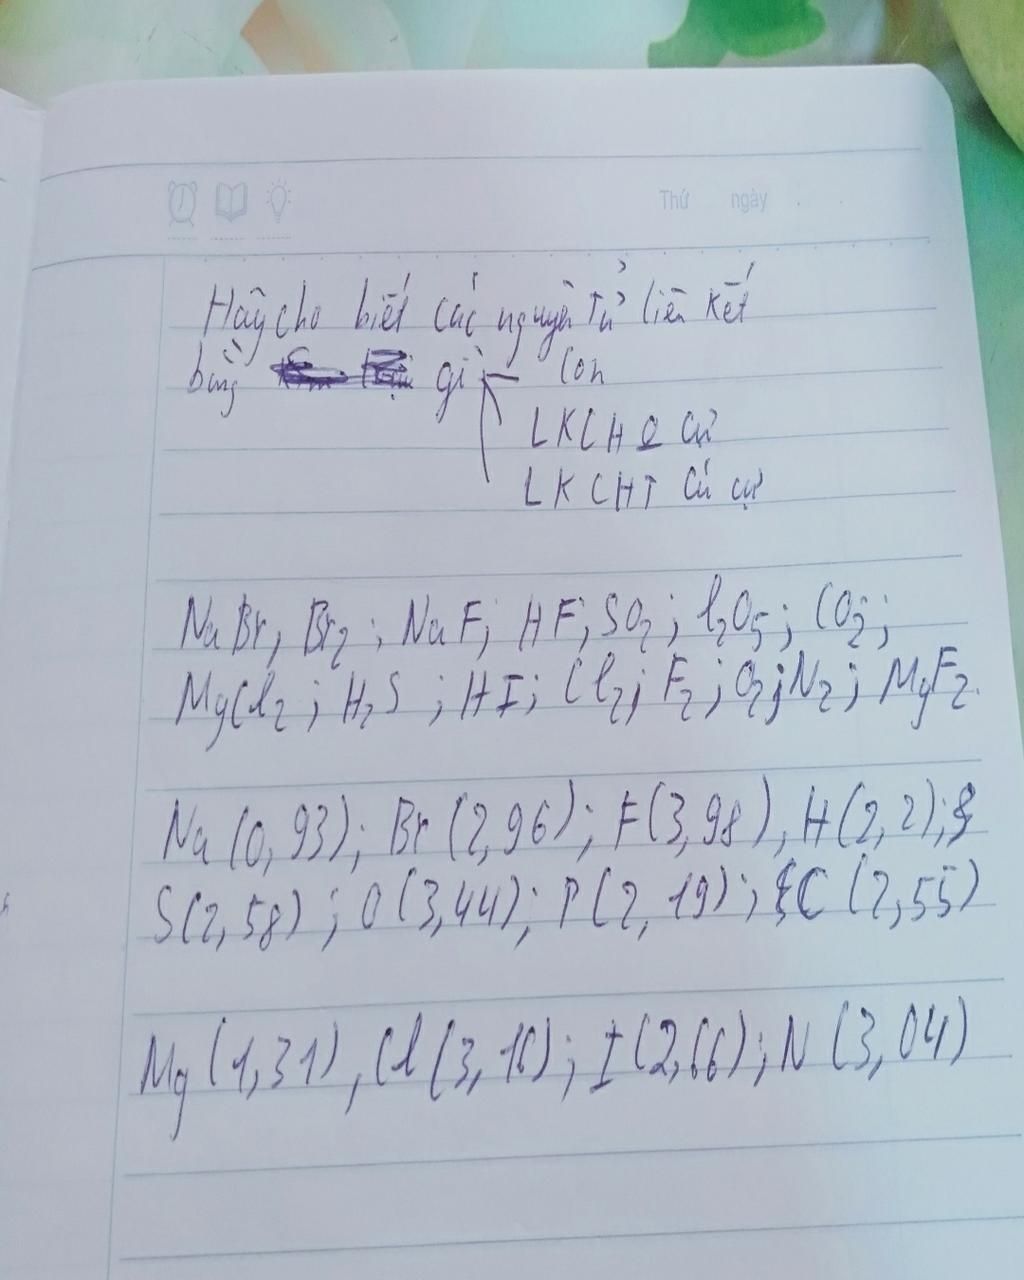 Thứ ngày
Hãy cho biết các nguyên tử liên kết
bằng gì Ion
LKCH Q cự
LKCHT có cự
NaBr, Br2; NaF; HF; SO2; P2O5; CO2;
MgCl2; H2S; HI; Cl2; F2; O2; N2; MgF2.
Na (0,93); Br (2,96); F(3,98), H(2,2);
S(2,58); O(3,44); P(2,19); C (2,55)
Mg (1,31), Cl (3,16); I(2,66); N (3,04)